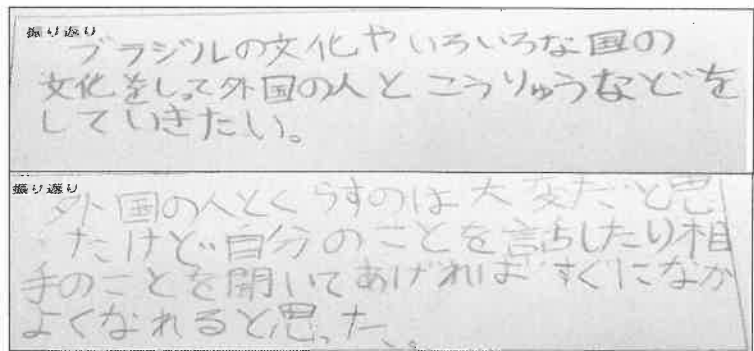 振り返り
ブラジルの文化やいろいろな国の
文化をしって外国の人とこうりゅうなどを
していきたい。
振り返り
外国の人とくらすのは大変だと思
たけど自分のことを言ちしたり相
手のことを開いてあげればすぐになか
よくなれると思った。